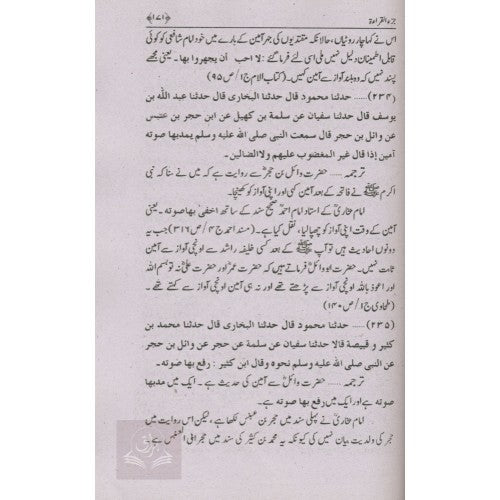 جزء القراءة
﴿۱۷۱﴾
اس نے کہا چار روٹیاں، حالانکہ مقتدیوں کی جہر آمین کے بارے میں خود امام شافعی کو کوئی
قابل اطمینان دلیل نہیں ملی اسی لئے فرما گئے : لا احب ان یجهروا بها ۔ یعنی مجھے
پسند نہیں کہ وہ بلند آواز سے آمین کہیں۔ (کتاب الام ج۱/ص۹۵)
(۲۳۴)...... حدثنا محمود قال حدثنا البخاری قال حدثنا عبد الله بن
یوسف قال حدثنا سفیان عن سلمة بن کهیل عن ابن حجر بن عنبس
عن وائل بن حجر قال سمعت النبی صلی الله علیه وسلم یمدبها صوته
آمین إذا قال غیر المغضوب علیهم ولاالضالین۔
ترجمہ ...... حضرت وائل بن حجرؓ سے روایت ہے کہ میں نے سنا کہ نبی
اکرم ﷺ نے فاتحہ کے بعد آمین کہی اور اپنی آواز کو کھینچا۔
امام بخاریؒ کے استاد امام احمدؒ صحیح سند کے ساتھ اخفیٰ بها صوته ۔ یعنی
آمین کے وقت اپنی آواز کو چھپا لیا، نقل کیا ہے۔ (مسند احمد ج۴/ص۳۱۶) جب یہ
دونوں احادیث ہیں تو آپ ﷺ کے بعد کسی خلیفہ راشد سے اونچی آواز سے آمین
ثابت نہیں۔ حضرت ابو وائلؒ فرماتے ہیں کہ حضرت عمرؓ اور حضرت علیؓ نہ تو بسم اللہ
اور اعوذ باللہ اونچی آواز سے پڑھتے تھے اور نہ ہی آمین اونچی آواز سے کہتے تھے ۔
(طحاوی ج۱/ص۱۴۰)
(۲۳۵)...... حدثنا محمود قال حدثنا البخاری قال حدثنا محمد بن
کثیر و قبیصة قالا حدثنا سفیان عن سلمة عن حجر عن وائل بن حجر
عن النبی صلی الله علیه وسلم نحوه وقال ابن کثیر : رفع بها صوته۔
ترجمہ ...... حضرت وائلؓ سے آمین کی حدیث ہے ۔ ایک میں مدبها
صوته ہے اور ایک میں رفع بها صوته ہے۔
امام بخاریؒ نے پہلی سند میں حجر بن عنبس لکھا ہے، لیکن اس روایت میں
حجر کی ولدیت بیان نہیں کی کیونکہ یہ محمد بن کثیر کی سند میں حجر ابی العنبس ہے۔